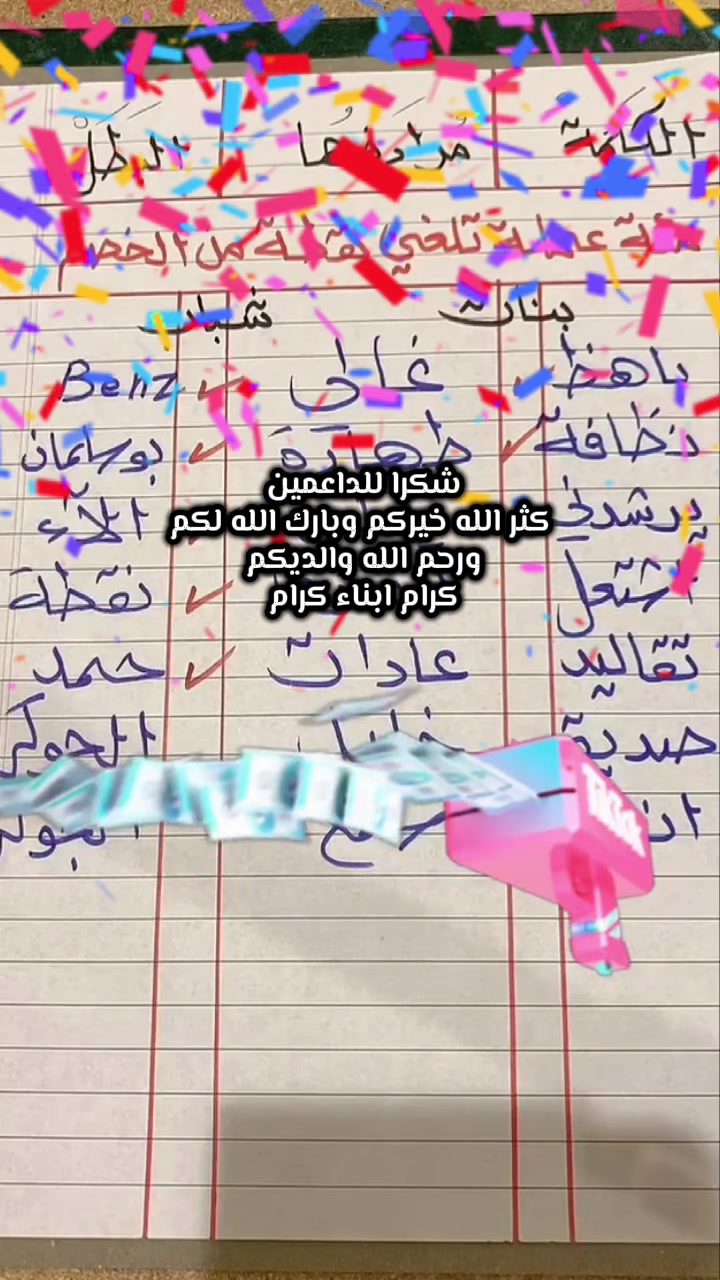 الكلمة مرادفها البطل
عملة تلغي نقطة من الخصم
بنات شباب
باهظ غالي Benz
نظافة طهارة بوسلمان
يرشدني الآء
اشتعل نقطة
تقاليد عادات حمد
الجوكر
شكرا للداعمين
كثر الله خيركم وبارك الله لكم
ورحم الله والديكم
كرام ابناء كرام
TikTok